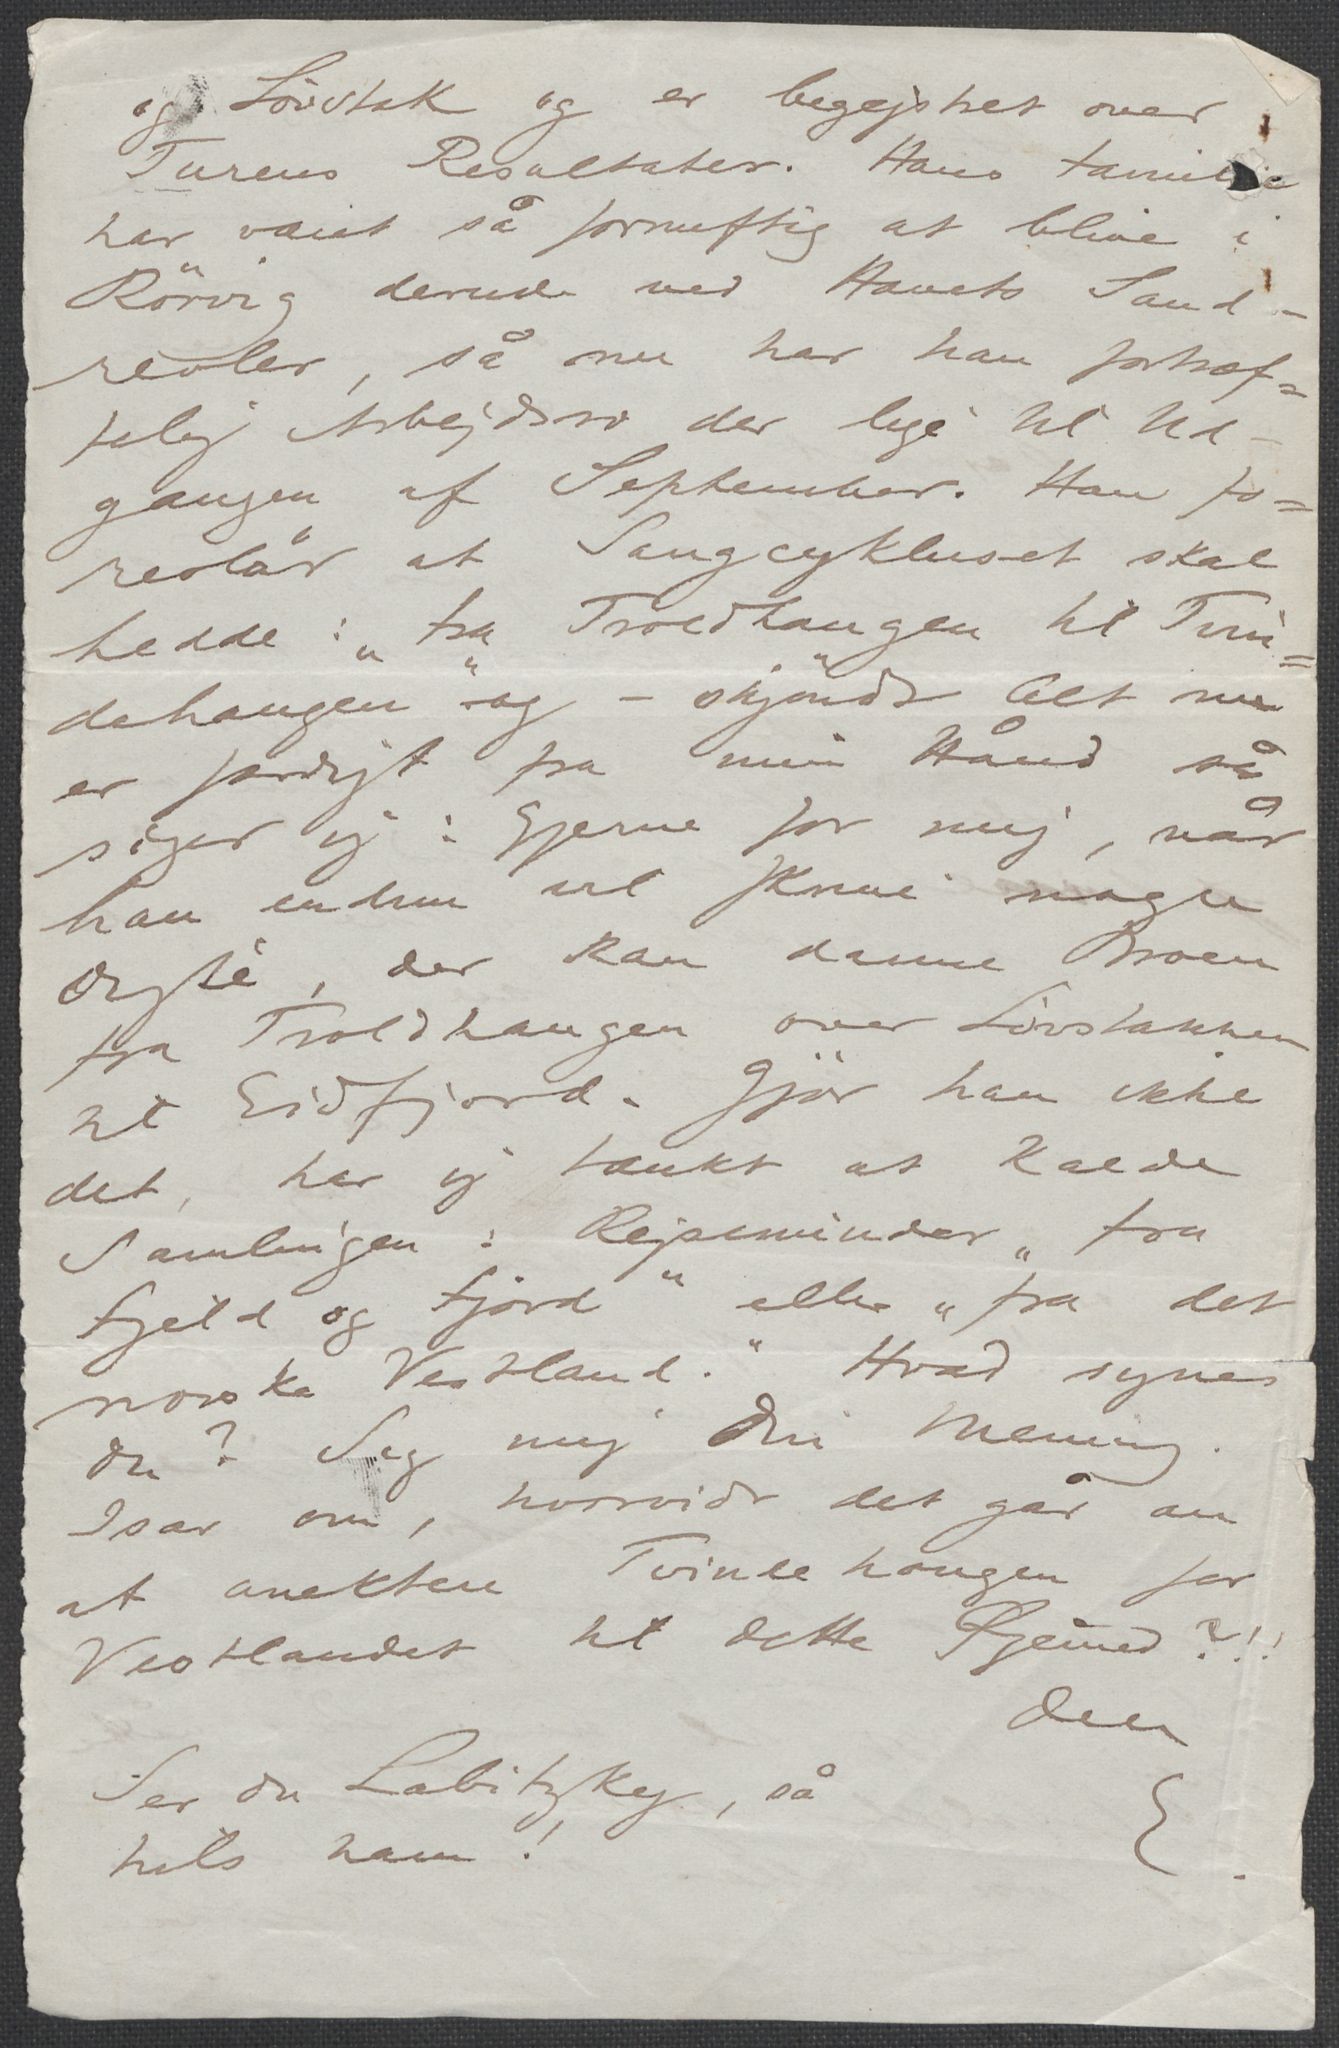 og Lövstak og er begejstret over
Turens Resultater. Hans Familie
har været så fornuftig at blive i
Rörvig derude ved Havets Sand-
revler, så nu har han fortræf=
felig Arbejdsro der lige til Ud-
gangen af September. Han fo=
reslår at Sangcykluset skal
hedde: „Fra Troldhaugen til Tvin=
dehaugen“ og – skjöndt Alt nu
er færdigt fra min Hånd så
siger jeg: Gjerne for mig, når
han endnu vil skrive nogle
Digte, der kan danne Broen
fra Troldhaugen over Lövstakken
til Eidfjord. Gjör han ikke
det, har jeg tænkt at kalde
Samlingen: Rejseminder „fra
Fjeld og Fjord“ eller „fra det
norske Vestland.“ Hvad synes
du? Sig mig din Mening.
Især om, hvorvidt det går an
at anektere Tvindehougen for
Vestlandet til dette Øjemed?!!
Din
E.
Ser du Labitzky, så
hils ham!